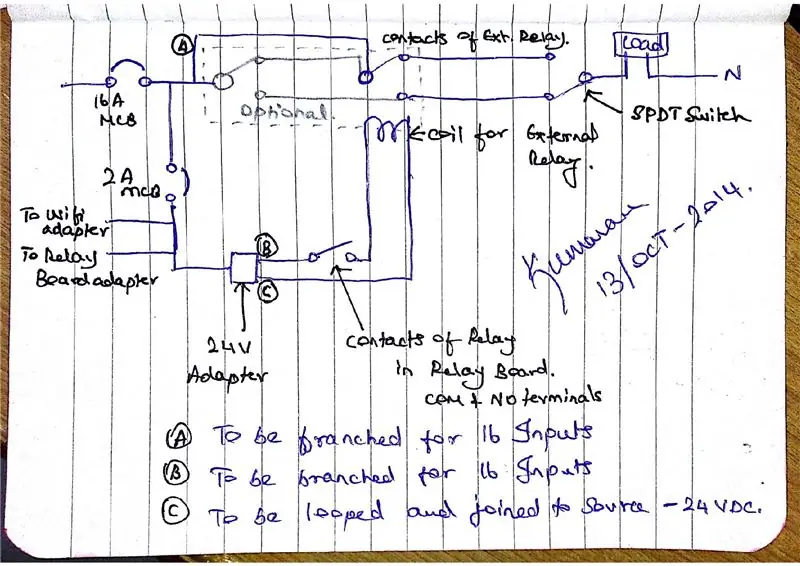 A
contacts of Ext. Relay.
Load
N
16A
MCB
Optional.
SPDT Switch
coil for External
Relay.
2A
MCB
To Wifi
adapter
To Relay
Board adapter
B
C
Kumaran
13/OCT-2014.
24V
Adapter
contacts of Relay
in Relay Board.
COM & NO terminals
A To be branched for 16 Inputs
B To be branched for 16 Inputs
C To be looped and joined to Source - 24VDC.